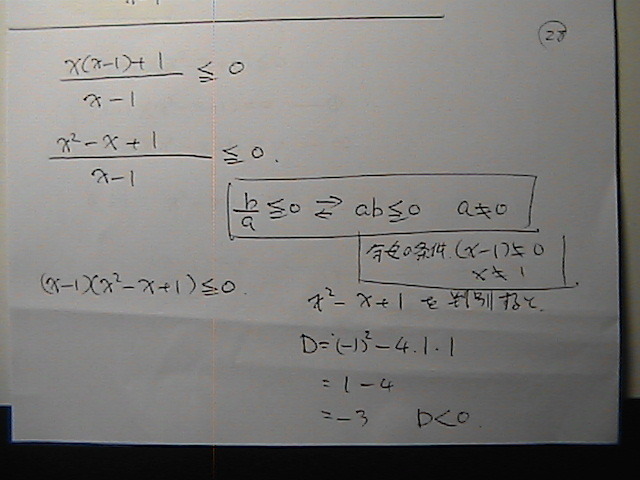 28
x(x-1)+1 / x-1 ≦ 0
x²-x+1 / x-1 ≦ 0.
b/a ≦0 ⇄ ab≦0 a≠0
分母0条件 (x-1)≠0
x≠1
(x-1)(x²-x+1)≦0.
x²-x+1を判別すると.
D=(-1)²-4.1.1
=1-4
=-3 D<0.